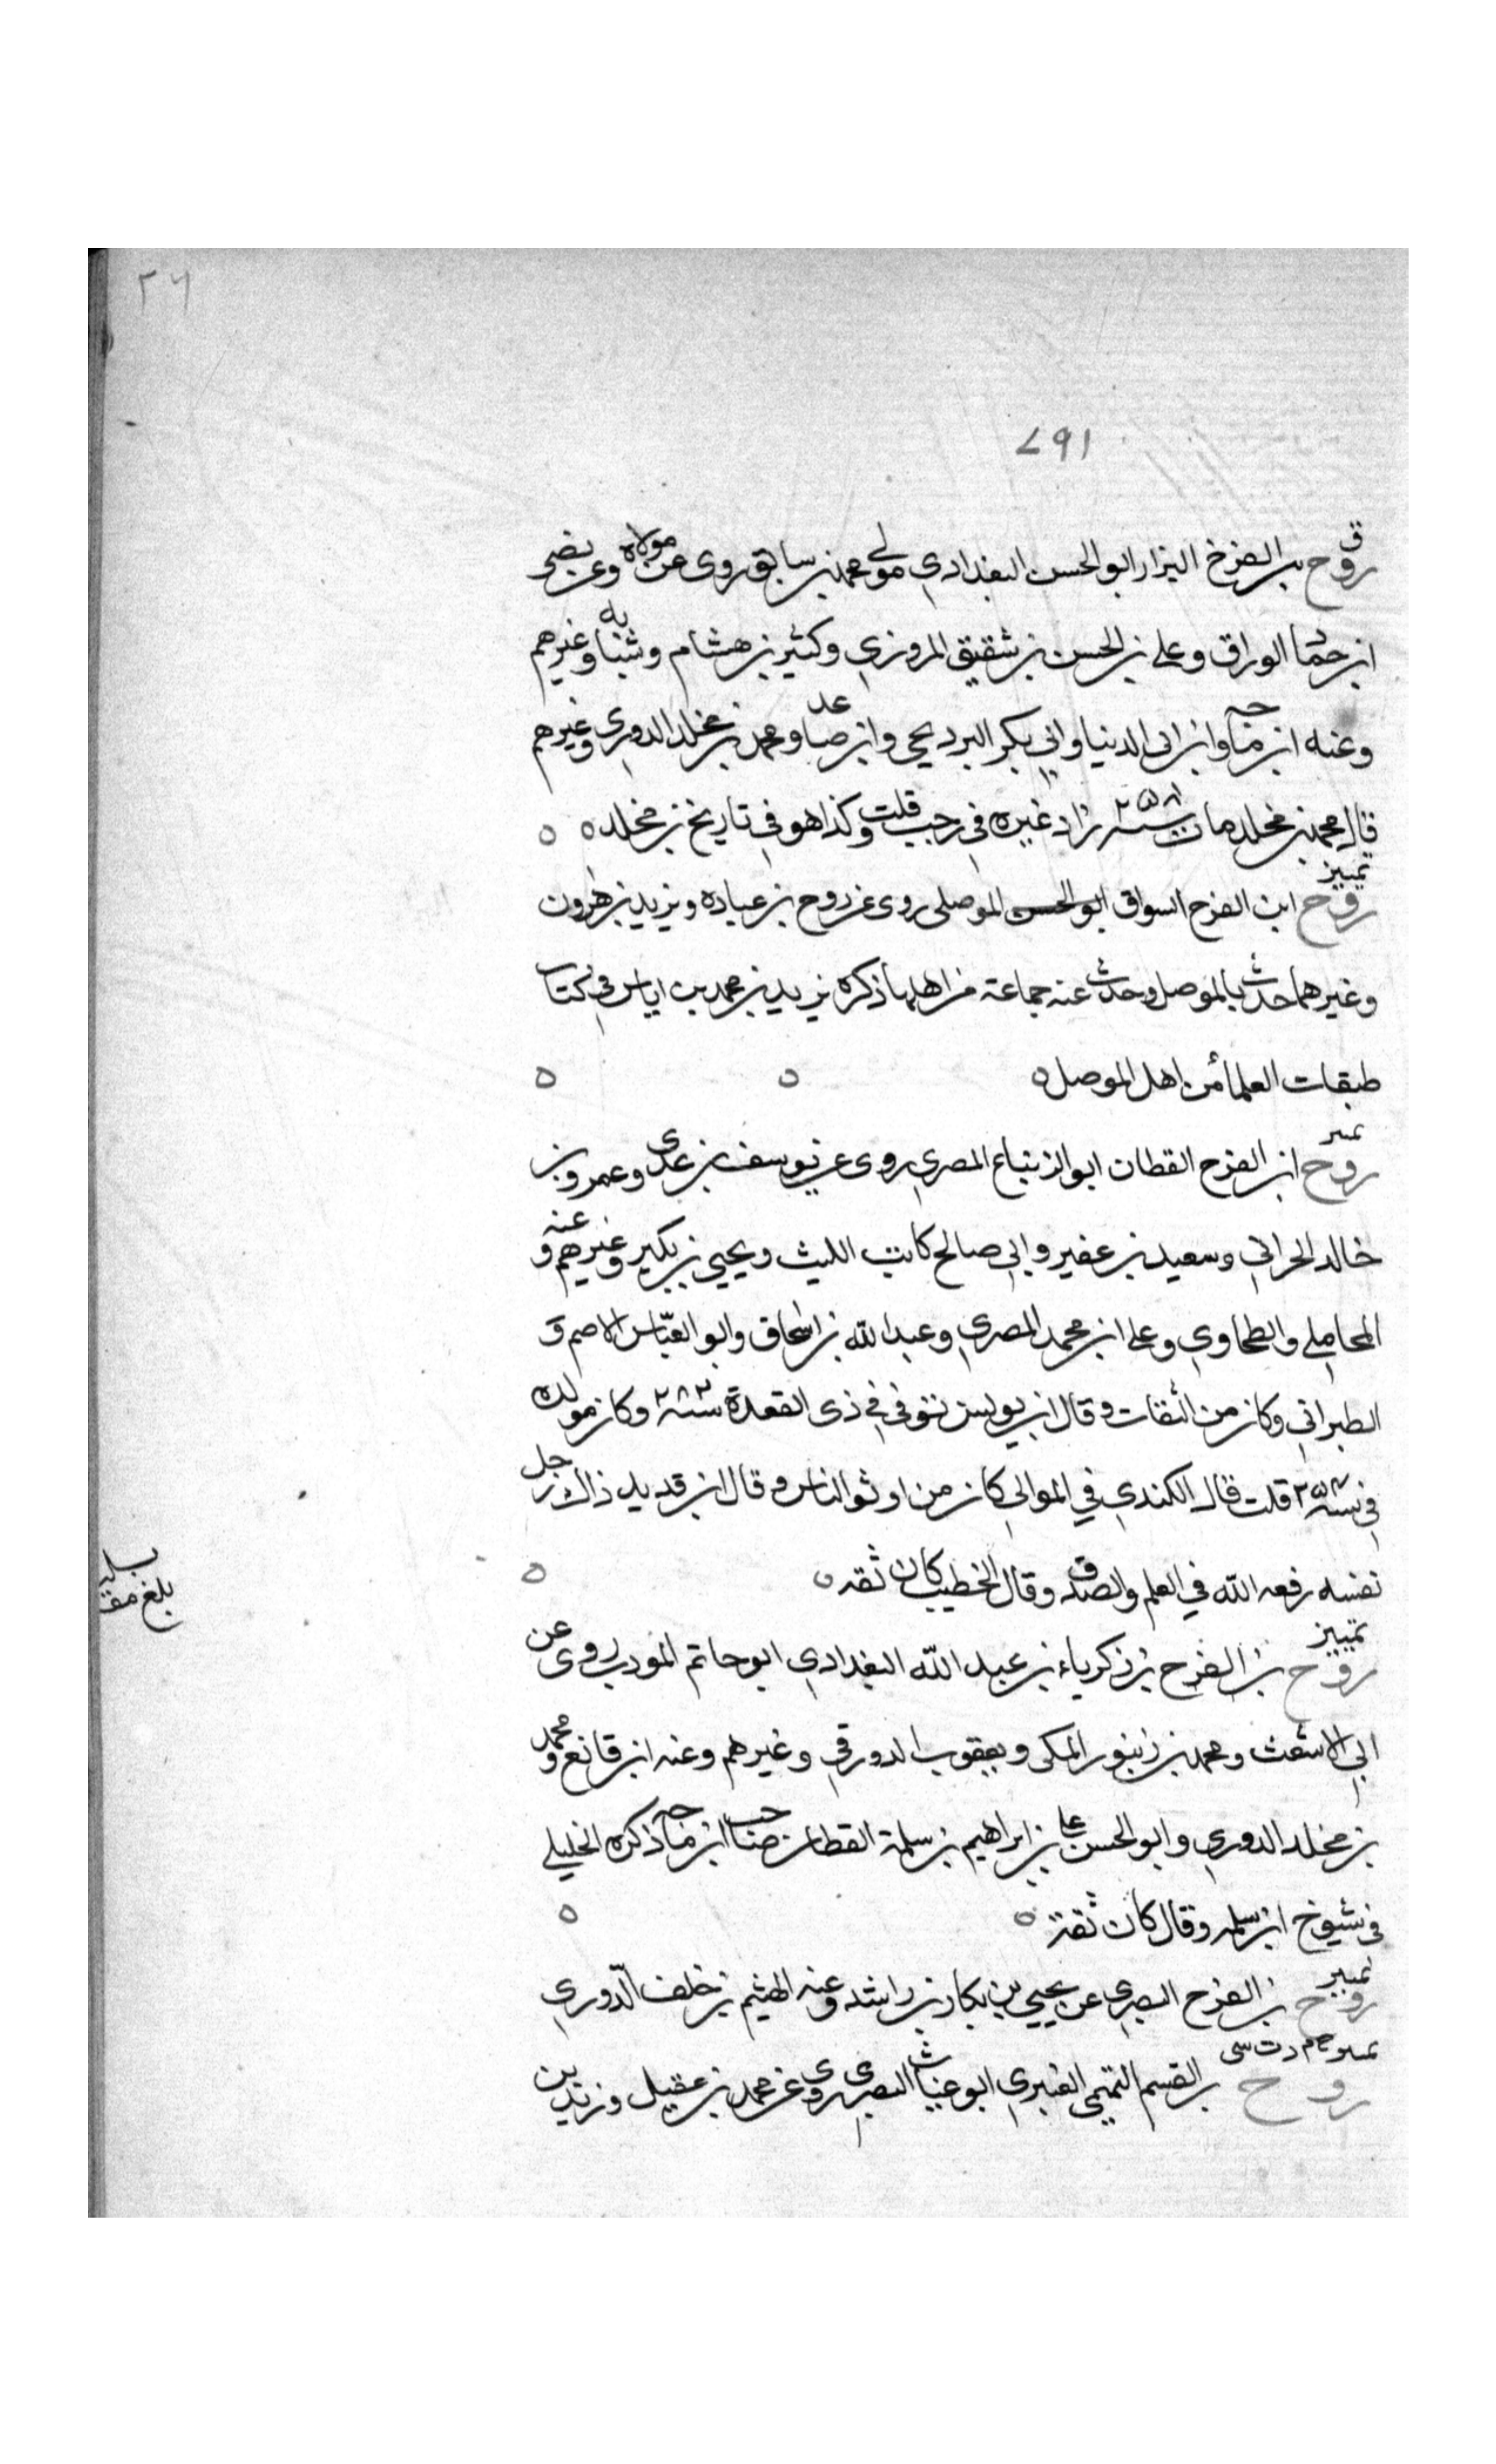 ٢٦
١٦٧
ق
روح بن الفرج البزار ابو الحسن البغدادي مولى محمد بن سابق روى عن مولاه وعن نصر
ابن حماد الوراق وعلي بن الحسن بن شقيق المروزي وكثير بن هشام وشبابه وغيرهم
وعنه ابن ماجه وابن ابي الدنيا وابي بكر البرديجي وابن صاعد ومحمد بن مخلد الدوري وغيرهم
قال محمد بن مخلد مات سنة ٢٥٨ زاد غيره في رجب قلت وكذا هو في تاريخ بن مخلد ه ه
تمييز
روح ابن الفرج السواق ابو الحسن الموصلي روى عن روح بن عباده ويزيد بن هرون
وغيرهما حدث بالموصل وحدث عنه جماعة من اهلها ذكره يزيد بن محمد بن اياس في كتاب
طبقات العلماء من اهل الموصل ه ه ه
تمييز
روح ابن الفرج القطان ابو الزنباع المصري روى عن يوسف بن عدي وعمرو بن
خالد الحراني وسعيد بن عفير وابي صالح كاتب الليث ويحيى بن بكير وغيرهم وعنه
المحاملي والطحاوي وعلى ابن محمد المصري وعبد الله بن اسحاق وابو العباس الاصم و
الطبراني وكان من الثقات وقال ابن يونس توفي في ذي القعدة سنة ٢٨٢ وكان مولده
في سنة قلت قال الكندي في الموالي كان من اوثق الناس وقال ابن قديد ذاك رجل
نفسه رفعه الله في العلم والصدق وقال الخطيب كان ثقه ه ه
بلغ مقابلة
تمييز
روح بن الفرج بن زكرياء بن عبد الله البغدادي ابو حاتم المودب روى عن
ابي الاشعث ومحمد بن زنبور المكي ويعقوب الدورقي وغيرهم وعنه ابن قانع ومحمد
بن مخلد الدوري وابو الحسن علي بن ابراهيم بن سلمة القطان صاحب ابن ماجه ذكره الخليلي
في شيوخ ابن سلمه وقال كان ثقة ه ه
تمييز
روح بن الفرج البصري عن يحيى بن بكار بن راشد وعنه الهيثم بن خلف الدوري
خ م د ت سي
روح بن القسم التميمي العنبري ابو غياث البصري روى عن محمد بن عقيل وزيد بن